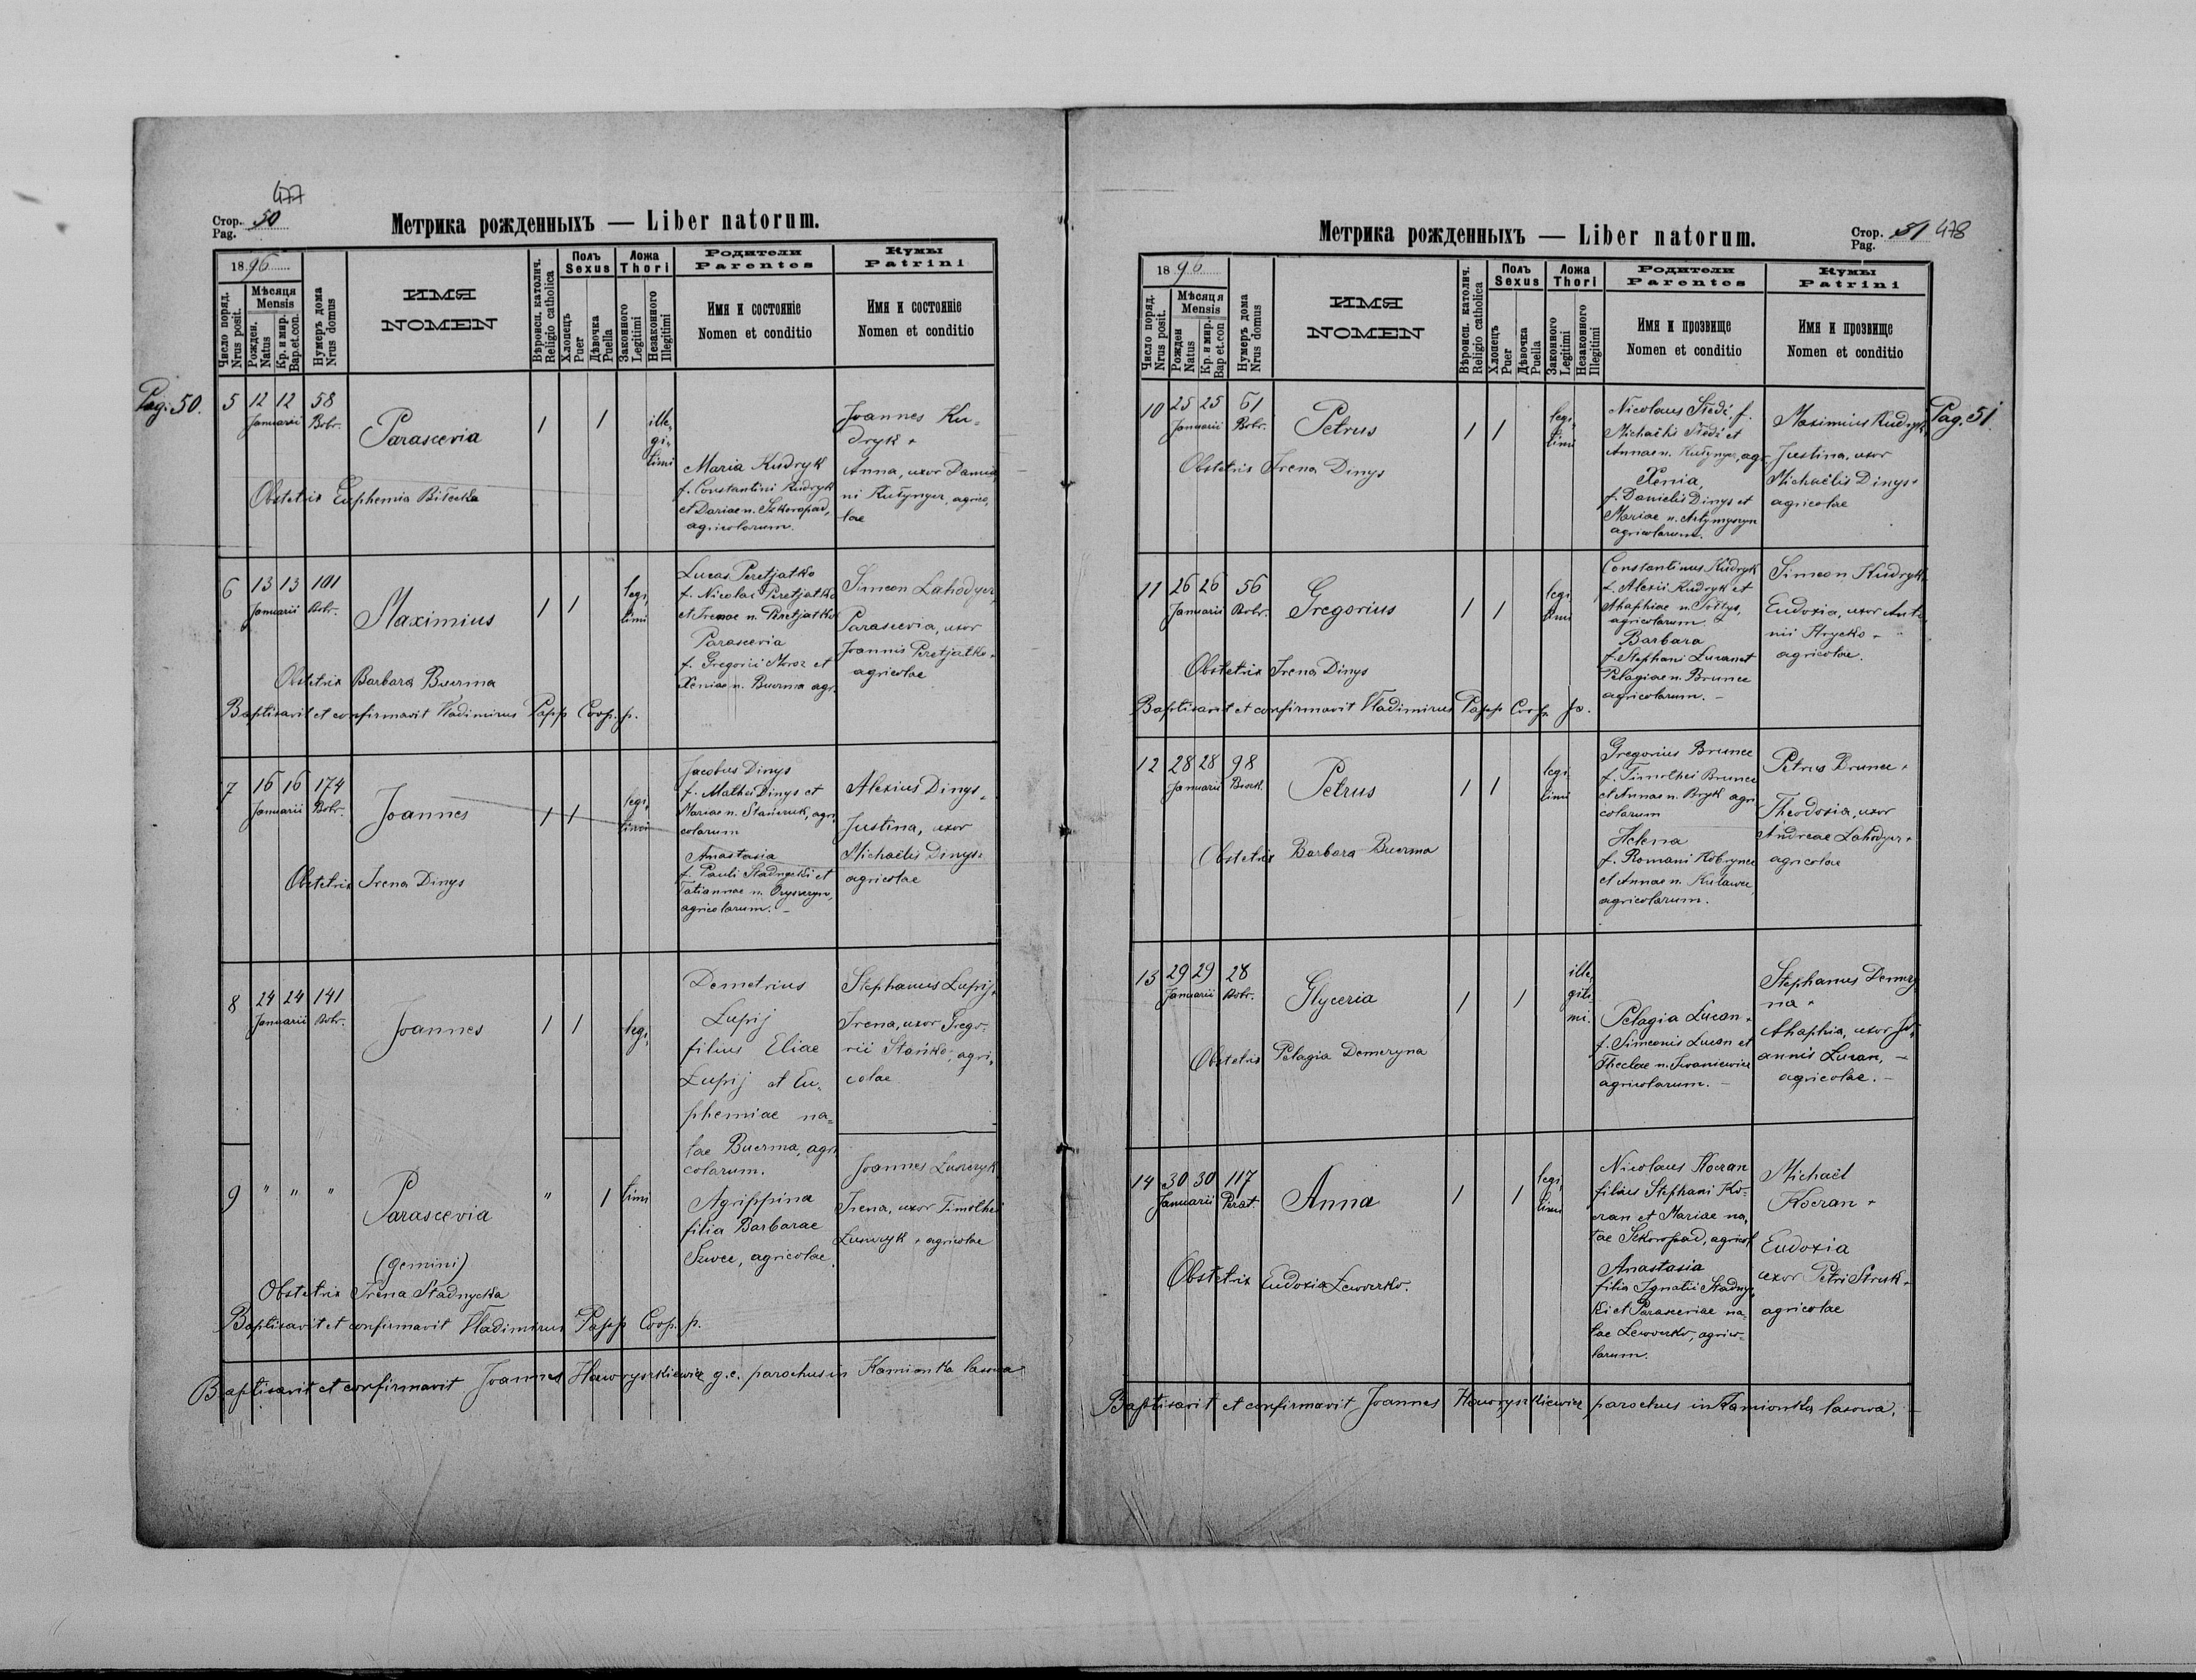 477
Стор. 50
Pag.
Метрика рожденныхъ — Liber natorum.
1896
Число поряд.
Nrus posit.
Мѣсяця
Mensis
Рожден.
Natus
Кр. и мир.
Bap.et.con.
Нумеръ дома
Nrus domus
ИМЯ
NOMEN
Вѣроисп. католич.
Religio catholica
Полъ
Sexus
Хлопецъ
Puer
Дѣвочка
Puella
Ложа
Thori
Законного
Legitimi
Незаконного
Illegitimi
Родители
Parentes
Имя и состояніе
Nomen et conditio
Кумы
Patrini
Имя и состояніе
Nomen et conditio
Pag. 50.
5 12 12 58
Januarii Bobr.
Parascevia
1 1
ille,
gi,
timi
Maria Kudryk
f. Constantini Kudryk
et Dariae n. Szkoropad,
agricolarum.
Joannes Ku-
dryk +
Anna, uxor Damia
ni Kułynycz, agrico,
lae
Obstetrix Euphemia Biłecka
6 13 13 101
Januarii Bobr.
Maximius
1 1
legi,
timi
Lucas Peretjatko
f. Nicolai Peretjatko
et Irenae n. Peretjatko
Parascevia
f. Gregorii Moroz et
Xeniae n. Buczma agr.
Simeon Lahodycz,
Parascevia, uxor
Joannis Peretjatko +
agricolae
Obstetrix Barbara Buczma
Baptisavit et confirmavit Vladimirus Papp Coop. p.
7 16 16 174
Januarii Bobr.
Joannes
1 1
legi,
timi
Jacobus Dinys
f. Mathei Dinys et
Mariae n. Stańczuk, agri
colarum
Anastasia
f. Pauli Stadnycki et
Tatiannae n.
agricolarum. -
Alexius Dinys,
Justina, uxor
Michaëlis Dinys +
agricolae
Obstetrix Irena Dinys
8 24 24 141
Januarii Bobr.
Joannes
1 1
legi,
Demetrius
Łupij
filius Eliae
Łupij et Eu-
phemiae na-
tae Buczma, agri
colarum.
Stephanus Łupij,
Irena, uxor Grego-
rii Stańko, agri,
colae
9 " " "
Parascevia
" 1 timi
(gemini)
Agrippina
filia Barbarae
Szwec, agricolae.
Joannes Łuszczyk
Irena, uxor Timothei
Łuszczyk + agricolae
Obstetrix Irena Stadnycka
Baptisavit et confirmavit Vladimirus Papp Coop. p.
Baptisavit et confirmavit Joannes Hawryszkiewicz g.c. parochus in Kamionka lasowa
Метрика рожденныхъ — Liber natorum.
Стор. 51 478
Pag.
1896
Число поряд.
Nrus posit.
Мѣсяця
Mensis
Рожден
Natus
Кр. и мир.
Bap et.con
Нумеръ дома
Nrus domus
ИМЯ
NOMEN
Вѣроисп. католич.
Religio catholica
Полъ
Sexus
Хлопецъ
Puer
Дѣвочка
Puella
Ложа
Thori
Законного
Legitimi
Незаконного
Illegitimi
Родители
Parentes
Имя и прозвище
Nomen et conditio
Кумы
Patrini
Имя и прозвище
Nomen et conditio
Pag. 51.
10 25 25 61
Januarii Bobr.
Petrus
1 1
legi,
timi
Nicolaus
Michaëlis et
Annae n. Kułynycz, agr
Xenia,
f. Danielis Dinys et
Mariae n. Artymyszyn
agricolarum.
Maximius Kudryk,
Justina, uxor
Michaëlis Dinys +
agricolae
Obstetrix Irena Dinys
11 26 26 56
Januarii Bobr.
Gregorius
1 1
legi
timi
Constantinus Kudryk
f. Alexii Kudryk et
Ahaphiae n. Sołtys,
agricolarum. &
Barbara
f. Stephani Łucan et
Pelagiae n. Brunec
agricolarum. -
Simeon Kudryk,
Eudoxia, uxor Anto
nii Hrycko -
agricolae.
Obstetrix Irena Dinys
Baptisavit et confirmavit Vladimirus Papp Coop. p.
12 28 28 98
Januarii
Petrus
1 1
legi
timi
Gregorius Brunec
f. Timothei Brunec
et Annae n. Bryk agri
colarum
Helena
f. Romani Kobrynec
et Annae n. Kulawec,
agricolarum.
Petrus Brunec +
Theodosia, uxor
Andreae Lahodycz +
agricolae
Obstetrix Barbara Buczma
13 29 29 28
Januarii Bobr.
Glyceria
1 1
ille,
giti
mi.
Pelagia Łucan +
f. Simeonis Łucan et
Theclae n. Iwaniewicz
agricolarum. -
Stephanus Demczy
na +
Ahaphia, uxor Jo,
annis Łucan, -
agricolae. -
Obstetrix Pelagia Demczyna
14 30 30 117
Januarii Perat.
Anna
1 1
legi,
timi
Nicolaus Koczan
filius Stephani Ko-
czan et Mariae na,
tae Szkoropad, agricol
Anastasia
filia Ignatii Stadny,
cki et Parasceviae na-
tae Lewoczko, agrico-
larum.
Michaël
Koczan +
Eudoxia
uxor Petri Struk +
agricolae
Obstetrix Eudoxia Lewoczko.
Baptisavit et confirmavit Joannes Hawryszkiewicz parochus in Kamionka lasowa.